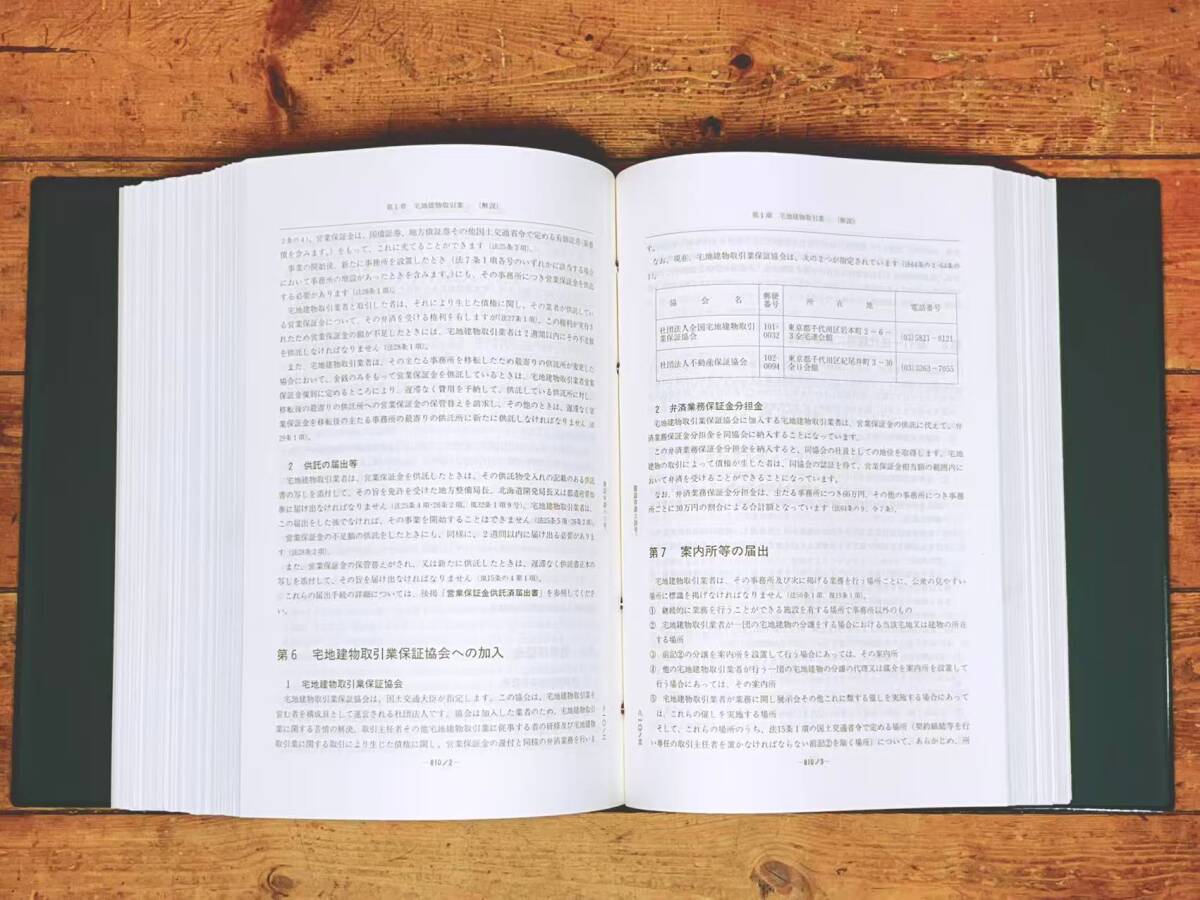 第1章　宅地建物取引業　〔解説〕
2条の4)。営業保証金は、国債証券、地方債証券その他国土交通省令で定める有価証券(振替
債を含みます。)をもって、これに充てることができます(法25条3項)。
事業の開始後、新たに事務所を設置したとき(法7条1項各号のいずれかに該当する場合
において事務所の増設があったときを含みます。)にも、その事務所につき営業保証金を供託
する必要があります(法26条1項)。
宅地建物取引業者と取引した者は、それにより生じた債権に関し、その業者が供託してい
る営業保証金について、その弁済を受ける権利を有しますが(法27条1項)、この権利が実行さ
れたため営業保証金の額が不足したときには、宅地建物取引業者は2週間以内にその不足額
を供託しなければなりません(法28条1項)。
また、宅地建物取引業者は、その主たる事務所を移転したため最寄りの供託所が変更した
場合において、金銭のみをもって営業保証金を供託しているときは、宅地建物取引業者営業
保証金規則に定めるところにより、遅滞なく費用を予納して、供託している供託所に対し、
移転後の最寄りの供託所への営業保証金の保管替えを請求し、その他のときは、遅滞なく営
業保証金を移転後の主たる事務所の最寄りの供託所に新たに供託しなければなりません(法
29条1項)。
2　供託の届出等
宅地建物取引業者は、営業保証金を供託したときは、その供託物受入れの記載のある供託
書の写しを添付して、その旨を免許を受けた地方整備局長、北海道開発局長又は都道府県知
事に届け出なければなりません(法25条4項・26条2項、規32条1項9号)。宅地建物取引業者は、
この届出をした後でなければ、その事業を開始することはできません(法25条5項・26条2項)。
営業保証金の不足額の供託をしたときにも、同様に、2週間以内に届け出る必要がありま
す(法28条2項)。
また、営業保証金の保管替えがされ、又は新たに供託したときは、遅滞なく供託書正本の
写しを添付して、その旨を届け出なければなりません(規15条の4第1項)。
これらの届出手続の詳細については、後掲「営業保証金供託済届出書」を参照してくださ
い。
第6　宅地建物取引業保証協会への加入
1　宅地建物取引業保証協会
宅地建物取引業保証協会は、国土交通大臣が指定します。この協会は、宅地建物取引業を
営む者を構成員として運営される社団法人です。協会は加入した業者のため、宅地建物取引
業に関する苦情の解決、取引主任者その他宅地建物取引業に従事する者の研修及び宅地建物
取引業に関する取引により生じた債権に関し、営業保証金の還付と同様の弁済業務を行いま
—810／2—
第1章　宅地建物取引業　〔解説〕
す。
なお、現在、宅地建物取引業保証協会は、次の2つが指定されています(法64条の2・64条の
協　会　名　郵便番号　所　在　地　電話番号
社団法人全国宅地建物取引業保証協会　101-0032　東京都千代田区岩本町2－6－3全宅連会館　(03)5821－8121
社団法人不動産保証協会　102-0094　東京都千代田区紀尾井町3－30全日会館　(03)3263－7055
2　弁済業務保証金分担金
宅地建物取引業保証協会に加入する宅地建物取引業者は、営業保証金の供託に代えて、弁
済業務保証金分担金を同協会に納入することになっています。
この弁済業務保証金分担金を納入すると、同協会の社員としての地位を取得します。宅地
建物の取引によって債権が生じた者は、同協会の認証を得て、営業保証金相当額の範囲内に
おいて弁済を受けることができることになっています。
なお、弁済業務保証金分担金は、主たる事務所につき60万円、その他の事務所につき事務
所ごとに30万円の割合による合計額となっています(法64条の9、令7条)。
第7　案内所等の届出
宅地建物取引業者は、その事務所及び次に掲げる業務を行う場所ごとに、公衆の見やすい
場所に標識を掲げなければなりません(法50条1項、規19条1項)。
① 継続的に業務を行うことができる施設を有する場所で事務所以外のもの
② 宅地建物取引業者が一団の宅地建物の分譲をする場合における当該宅地又は建物の所在
する場所
③ 前記②の分譲を案内所を設置して行う場合にあっては、その案内所
④ 他の宅地建物取引業者が行う一団の宅地建物の分譲の代理又は媒介を案内所を設置して
行う場合にあっては、その案内所
⑤ 宅地建物取引業者が業務に関し展示会その他これに類する催しを実施する場合にあって
は、これらの催しを実施する場所
そして、これらの場所のうち、法15条1項の国土交通省令で定める場所(契約締結等を行
い専任の取引主任者を置かなければならない前記②を除く場所)について、あらかじめ、所
—810／3—